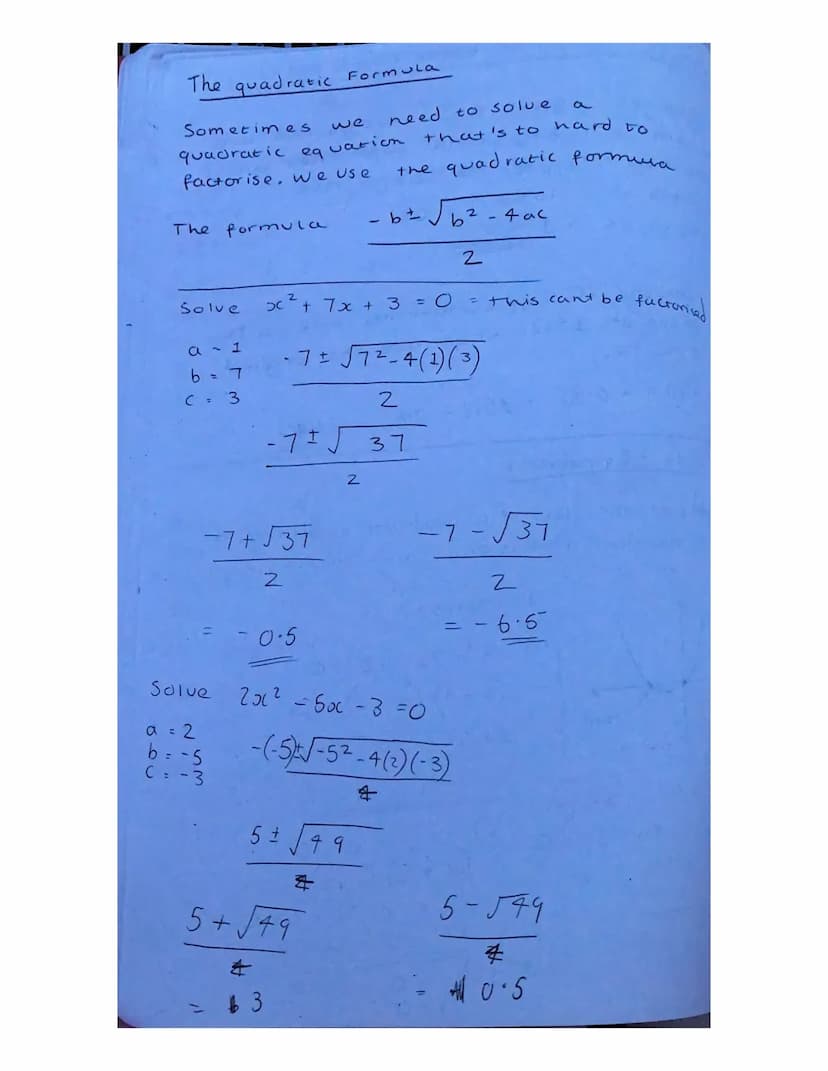 The quadratic Formula
Sometimes we need to solve a
quadratic equation that's to hard to
factorise. We use the quadratic formula
The formula -b±√b²-4ac / 2
Solve x² + 7x + 3 = 0 = this cant be factorised
a - 1
b = 7
c = 3
-7 ± √7²-4(1)(3) / 2
-7 ± √37 / 2
-7+√37 / 2
-7-√37 / 2
= -0.5
= -6.5
Solve 2x² - 5x - 3 = 0
a = 2
b = -5
c = -3
-(-5)±√-5²-4(2)(-3) / 4
5 ± √49 / 4
5+√49 / 4
5-√49 / 4
= 3
= 0.5